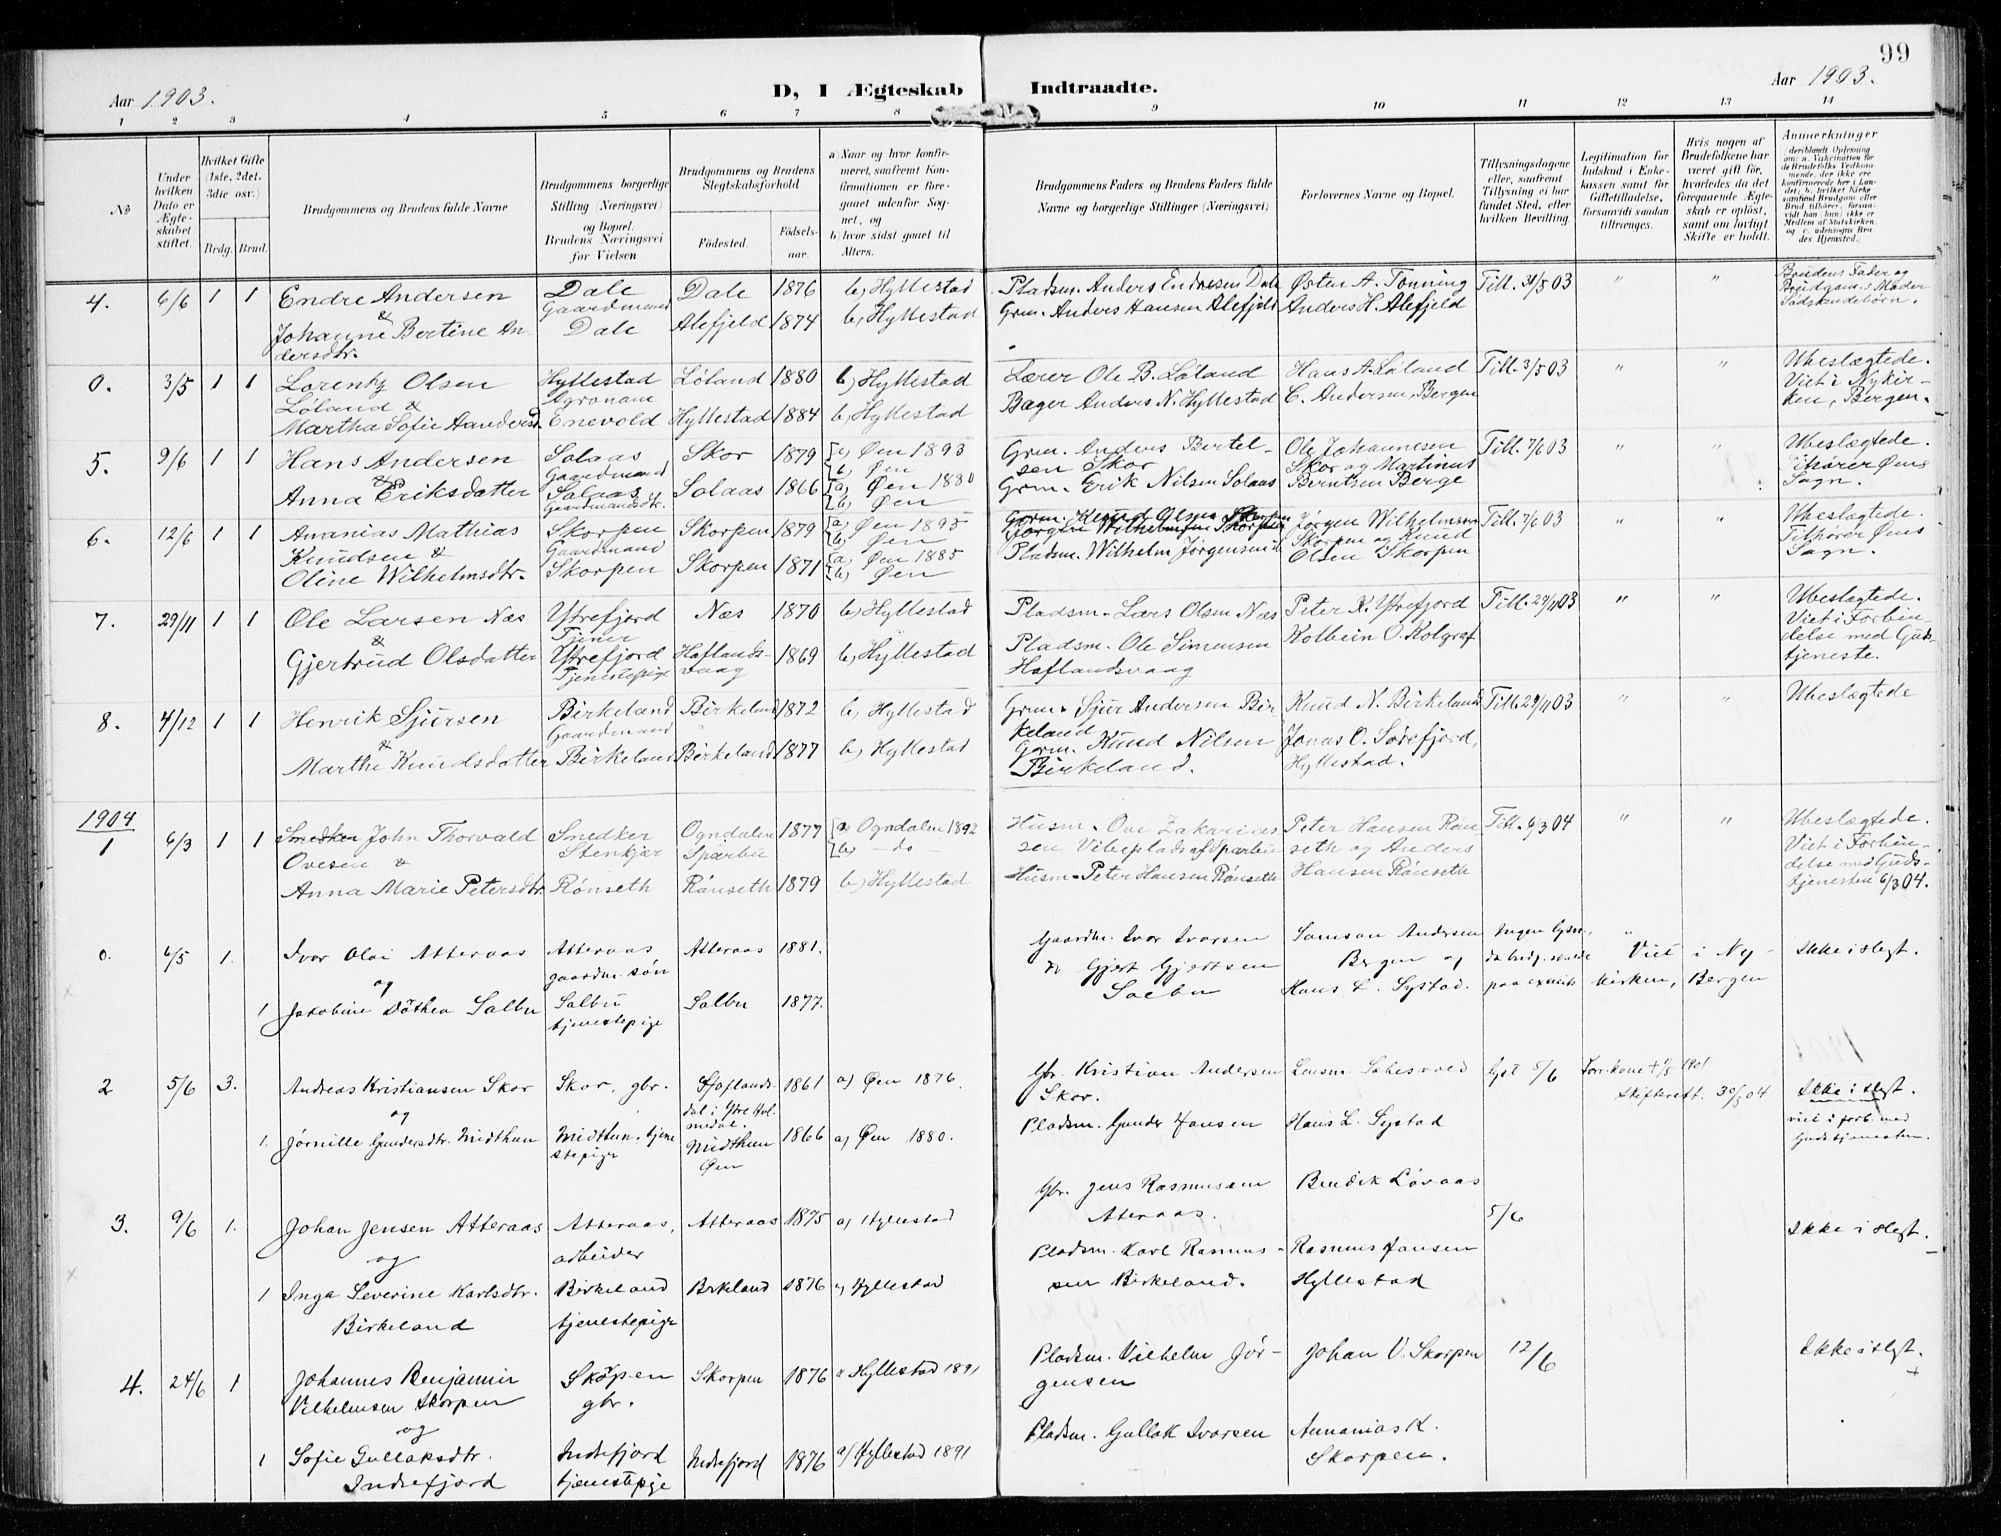 99
Aar 1903.
D, I Ægteskab Indtraadte.
Aar 1903.
1 2 3 4 5 6 7 8 9 10 11 12 13 14
No
Under hvilken Dato er Ægteskabet stiftet.
Hvilket Gifte (1ste, 2det, 3die osv.)
Brdg. Brud.
Brudgommens og Brudens fulde Navne
Brudgommens borgerlige Stilling (Næringsvei) og Bopæl. Brudens Næringsvei før Vielsen
Brudgommens og Brudens Slegtskabsforhold
Fødested. Fødselsaar.
a) Naar og hvor konfirmeret, saafremt Konfirmationen er foregaaet udenfor Sognet, og
b) hvor sidst gaaet til Alters.
Brudgommens Faders og Brudens Faders fulde Navne og borgerlige Stillinger (Næringsvei)
Forlovernes Navne og Bopæl.
Tillysningsdagene eller, saafremt Tillysning ei har fundet Sted, efter hvilken Bevilling
Legitimation for Indskud i Enkekassen samt for Giftetilladelse, forsaavidt saadan tiltrænges.
Hvis nogen af Brudefolkene har været gift før, hvorledes da det foregaaende Ægteskab er opløst, samt om lovligt Skifte er holdt.
Anmerkninger
4. 6/6 1 1 Endre Andersen Dale Gaardmand Dale 1876 b) Hyllestad Pladsm. Anders Endresen Dale Østen A. Tonning Till. 31/5 03 " " Brudens Fader og
& Brudgom.s Moder
Johanne Bertine An- Dale Alefjeld 1874 b) Hyllestad Grm. Anders Hansen Alefjeld Anders H. Alefjeld Sødskendebørn.
dersdtr.
0. 3/5 1 1 Lorentz Olsen Hyllestad Løland 1880 b) Hyllestad Lærer Ole B. Løland Hans A. Løland Till. 3/5 03 " " Ubeslægtede.
Løland & Agronom Viet i Nykir-
Martha Sofie Andersd. Enevold Hyllestad 1884 b) Hyllestad Bager Anders N. Hyllestad C. Andersen, Bergen ken, Bergen.
5. 9/6 1 1 Hans Andersen Solaas Skor 1879 a) Øen 1893 Grm. Anders Bertel- Ole Johannesen Till. 7/6 03 " " Ubeslægtede.
& Gaardmand b) Øen sen Skor Skor og Martinus Tilhører Øens
Anna Eriksdatter Solaas Solaas 1866 a) Øen 1880 Grm. Erik Nilsen Solaas Berntsen Berge Sogn.
Gaardmandsdtr. b) Øen
6. 12/6 1 1 Ananias Mathias Skorpen Skorpen 1879 a) Øen 1895 Grm. Knud Olsen Skorpen Jørgen Wilhelmsen Till. 7/6 03 " " Ubeslægtede.
Knudsen & Gaardmand b) Øen Jørgen Wilhelmsen Skorpen Skorpen og Knud Tilhører Øens
Oline Wilhelmsdtr. Skorpen Skorpen 1871 a) Øen 1885 Pladsm. Wilhelm Jørgensen Olsen Skorpen Sogn.
b) Øen
7. 29/11 1 1 Ole Larsen Næs Ytrefjord Næs 1870 b) Hyllestad Pladsm. Lars Olsen Næs Peter K. Ytrefjord Till. 29/11 03 " " Ubeslægtede.
& Tjener Viet i Forbin-
Gjertrud Olsdatter Ytrefjord Haflands- 1869 b) Hyllestad Pladsm. Ole Simensen Kolbein O. Kolgraf delse med Guds-
Tjenestepige vaag Haflandsvaag tjeneste.
8. 4/12 1 1 Henrik Sjursen Birkeland Birkeland 1872 b) Hyllestad Grm. Sjur Andersen Bir- Knud N. Birkeland Till. 29/11 03 " " Ubeslægtede
& Gaardmand keland
Marthe Knudsdatter Birkeland Birkeland 1877 b) Hyllestad Grm. Knud Nilsen Jonas O. Sørefjord,
Birkeland. Hyllestad.
1904
1 6/3 1 1 Snedker John Thorvald Snedker Ogndalen 1877 a) Ogndalen 1892 Husm. Ove Zakarias- Peter Hansen Røn- Till. 6/3 04 " " Ubeslægtede.
Ovesen & Stenkjær Sparbu b) - do - sen Vibeplads af Sparbu seth og Anders Viet i Forbin-
Anna Marie Petersdtr. Rønseth Rønseth 1879 b) Hyllestad Husm. Peter Hansen Rønseth Hansen Rønseth delse med Guds-
tjenesten 6/3 04.
0. 6/5 1. Ivor Olai Atteraas Atteraas Atteraas 1881. Gaardm. Ivor Ivorsen Samson Andersen Ingen " Viet i Ny- Ikke i slegt.
og gaardm. søn do Gjert Gjertsen Bergen og kirken, Bergen
1 Jakobine Dothea Salbu Salbu Salbu 1877. Salbu Hans L. Systad.
tjenestepige
2 5/6 3. Andreas Kristiansen Skor Skor, gbr. Hoflands- 1861 a) Øen 1876. Gbr. Kristian Andersen Lensm. 5/6 Forr. kone + 1/5 1901
og dal i Ytre Hol- Skor. Skifteratt. 30/5 04 Ikke i slegt.
medal. viet i forb. med
1. Jørnille Gundersdtr. Midthun Midthun, tjene Midthun 1866 a) Øen 1880. Pladsm. Gunder Jansen Hans L. Systad Gudstjenesten.
stepige Øen
3. 9/6 1. Johan Jensen Atteraas Atteraas, Atteraas 1875 a) Hyllestad Gbr. Jens Rasmussen Bendik Løvaas 5/6 Ikke i slegt.
og arbeider Atteraas.
1 Inga Severine Karlsdtr. Birkeland Birkeland 1876 a) Hyllestad Pladsm. Karl Rasmus- Rasmus Jansen
Birkeland tjenestepige sen Birkeland. Hyllestad
4. 24/6 1 Johannes Benjamin Skorpen Skorpen 1876 a Hyllestad 1891 Pladsm. Vilhelm Jør- Johan V. Skorpen 12/6 Ikke i slegt.
Vilhelmsen Skorpen gbr. gensen
og
1 Sofie Gullaksdtr. Indrefjord Indrefjord 1876 a) Hyllestad 1891 Pladsm. Gullak Ivorsen Annanias K.
Indrefjord tjenestepige Skorpen.